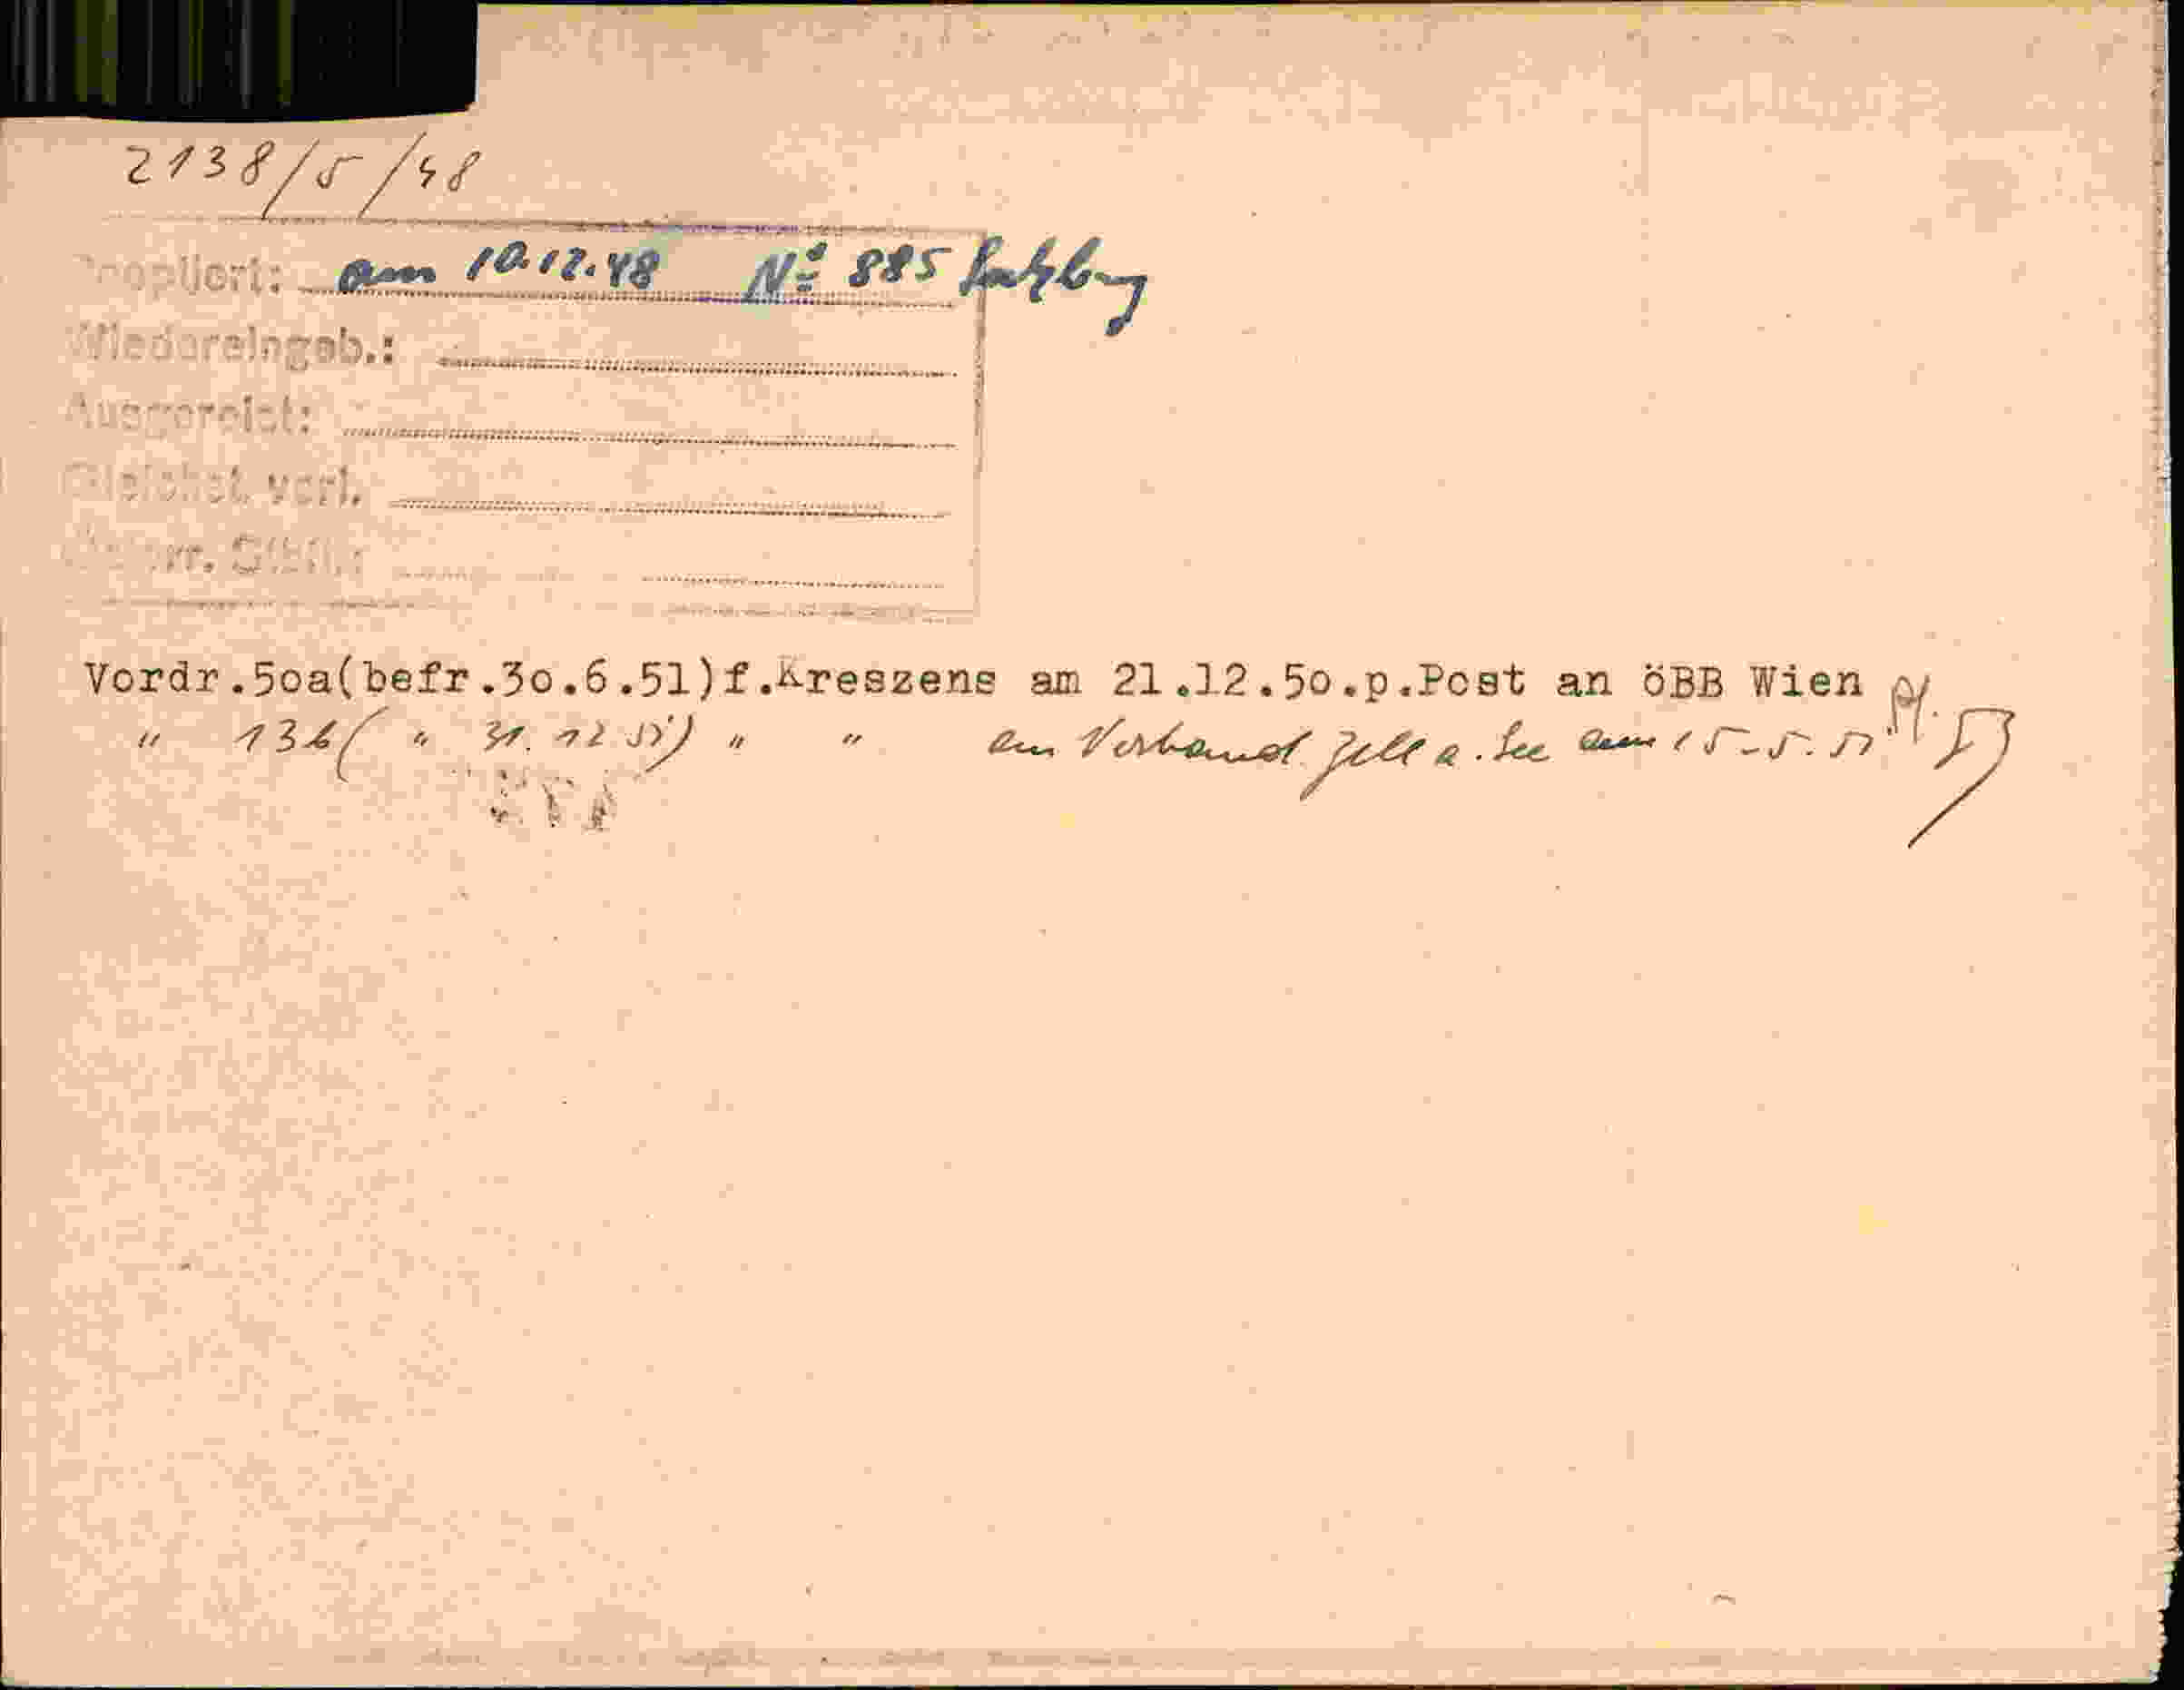 2138/5/48
Reoptiert: am 10.12.48 No 885 Salzburg
Wiedereingeb.:
Ausgereist:
Gleichst. verl.
Vordr.5oa(befr.3o.6.51)f.Kreszens am 21.12.5o.p.Post an öBB Wien
" 13b( " 31.12 51) " " an Verband Zell a. See am 15-5.51